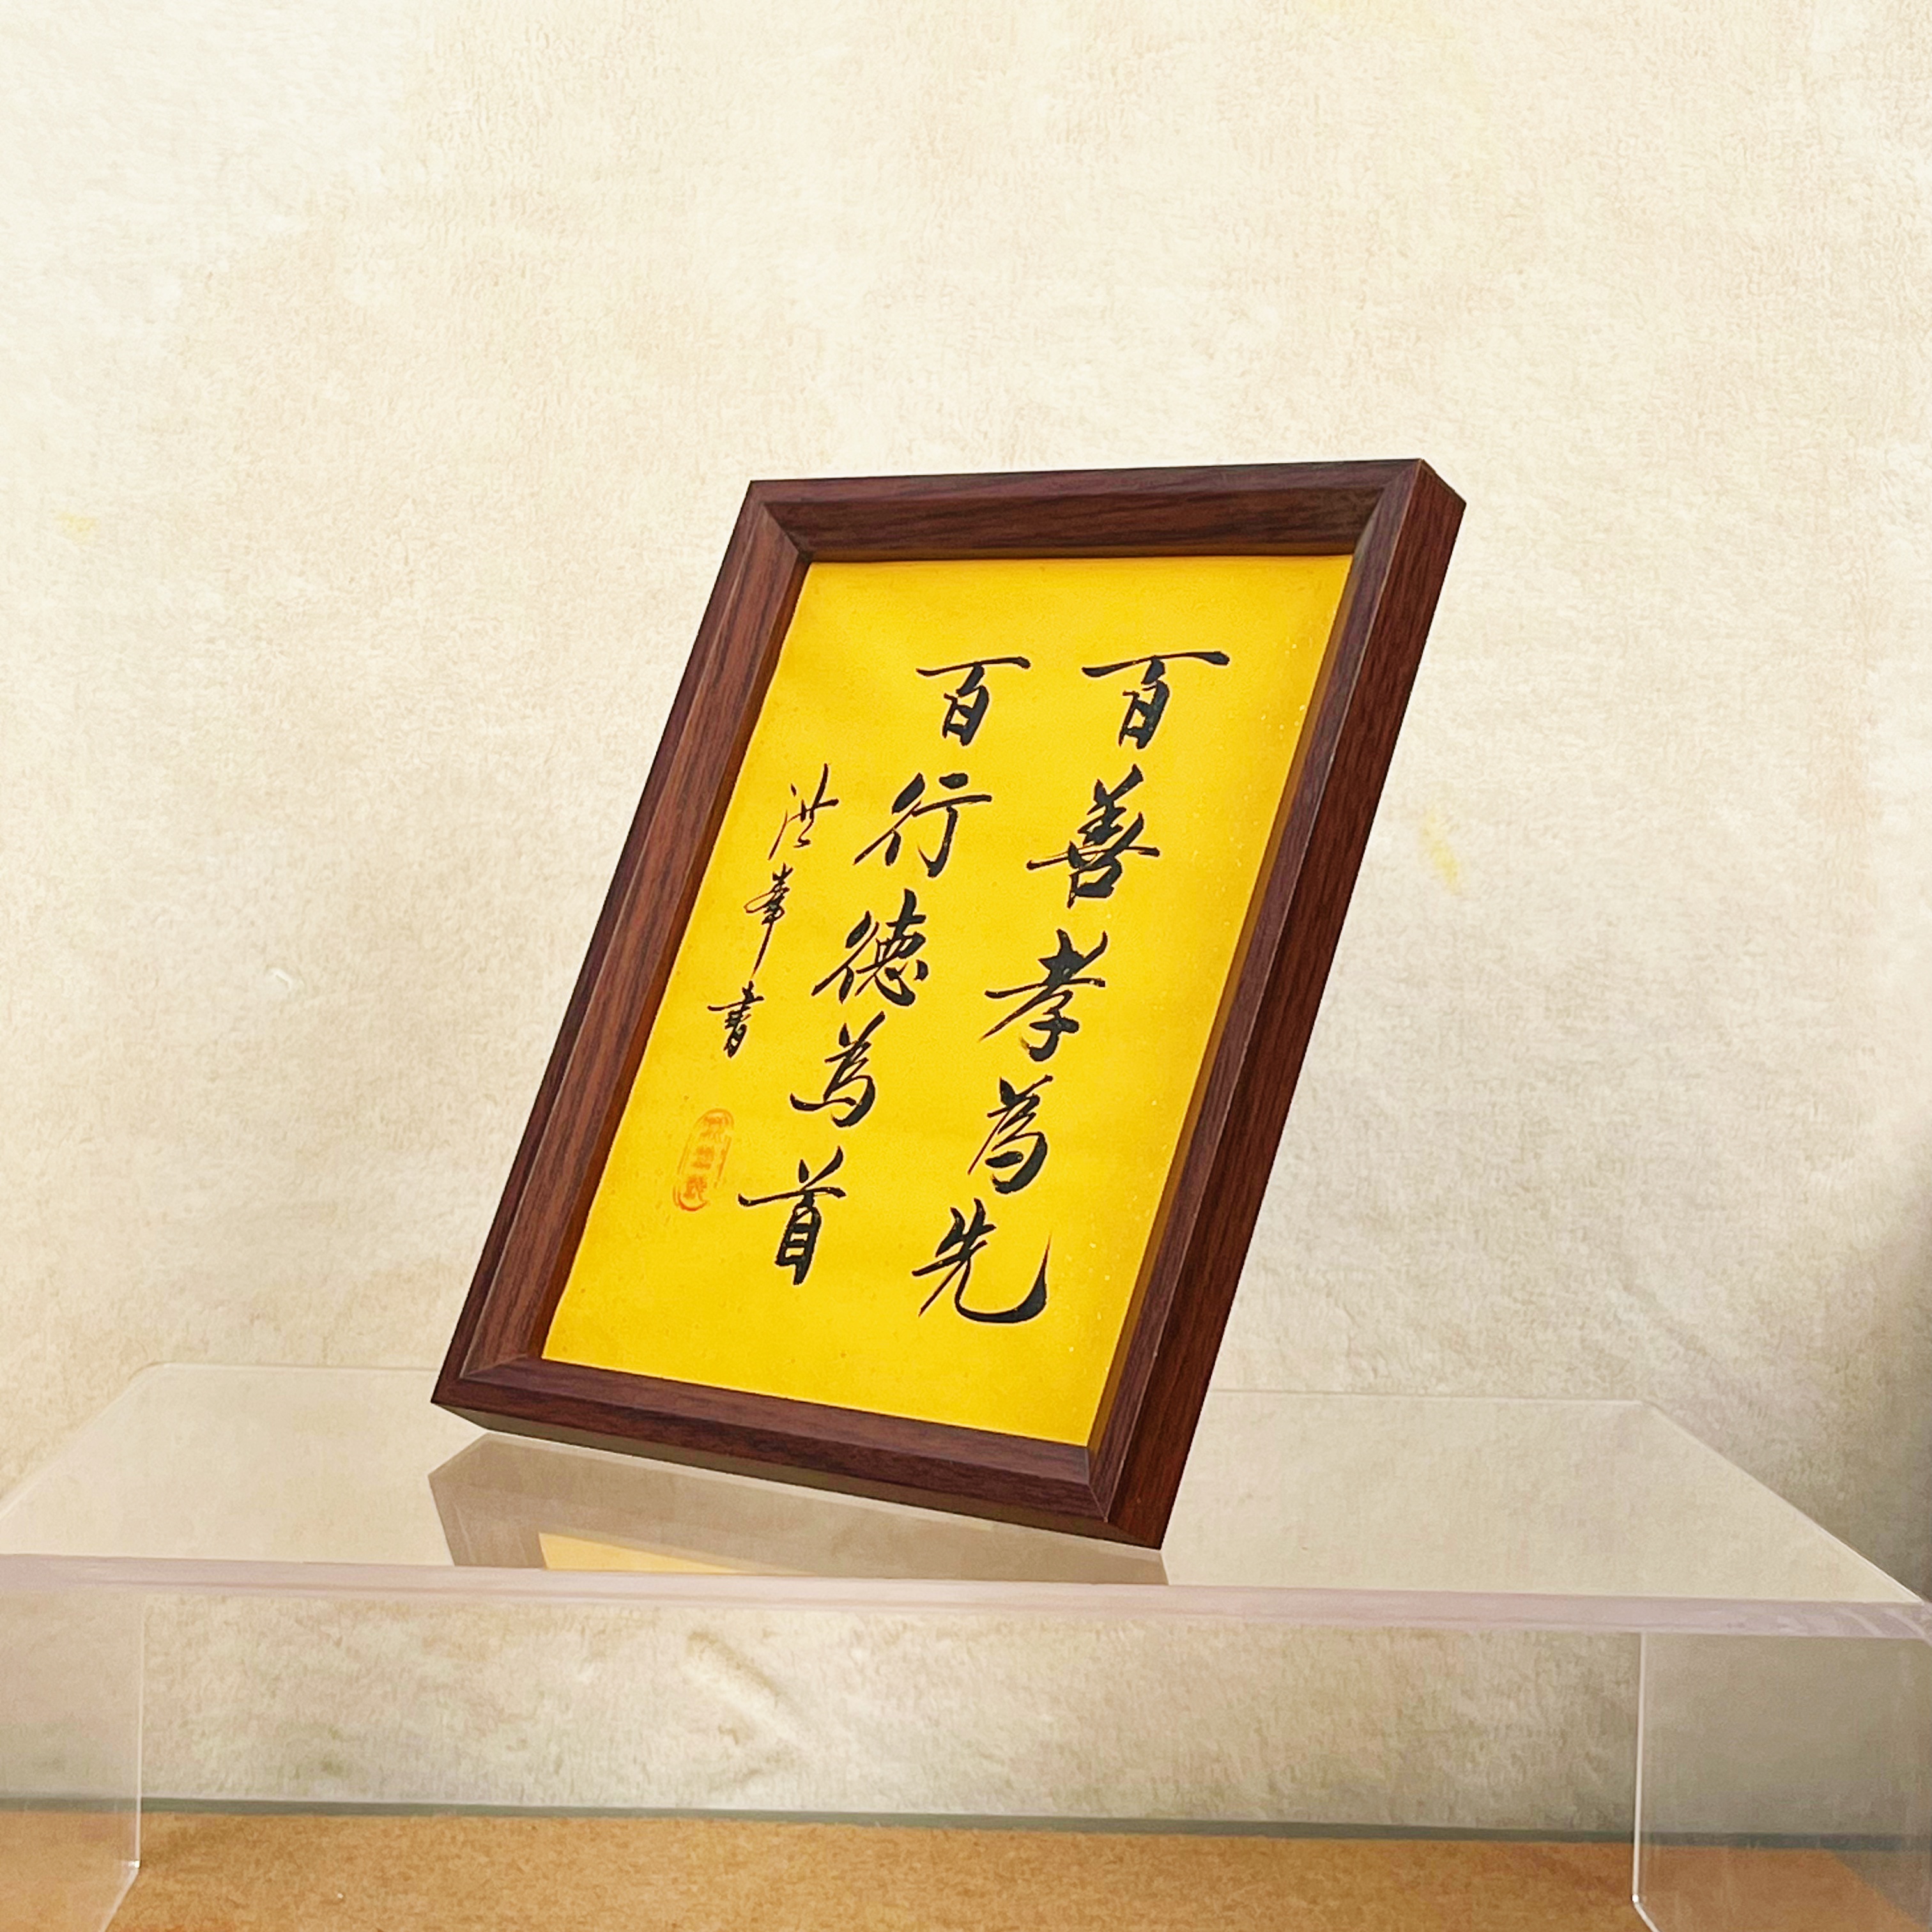 百善孝為先
百行德為首
洪峯書